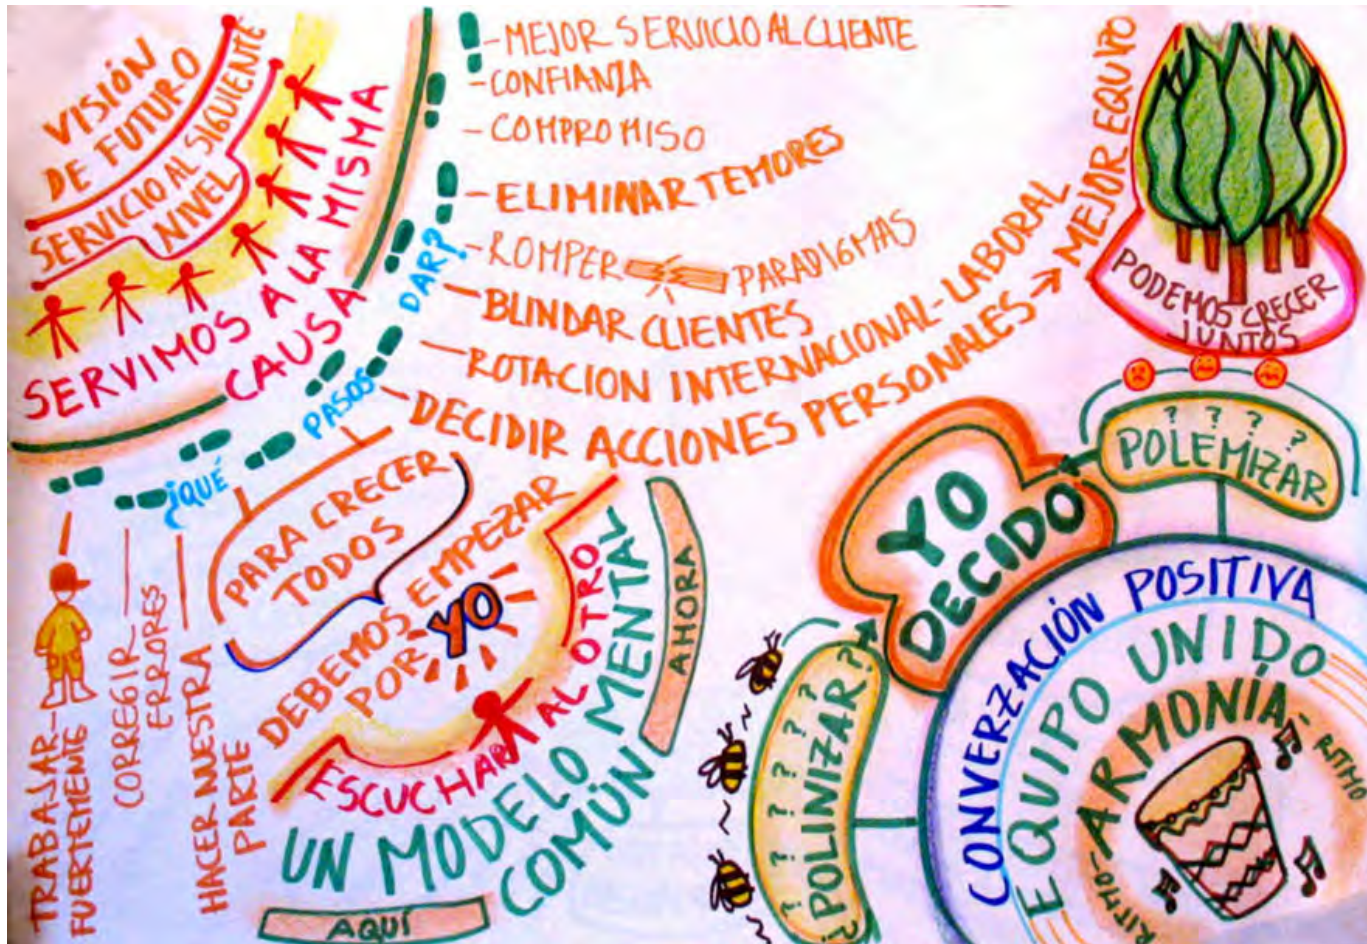 VISIÓN
DE FUTURO
SERVICIO AL SIGUIENTE
NIVEL
SERVIMOS A LA MISMA
CAUSA
¿QUÉ
PASOS
DAR?
- MEJOR SERVICIO AL CLIENTE
- CONFIANZA
- COMPROMISO
- ELIMINAR TEMORES
- ROMPER PARADIGMAS
- BLINDAR CLIENTES
- ROTACION INTERNACIONAL-LABORAL
- DECIDIR ACCIONES PERSONALES → MEJOR EQUIPO
TRABAJAR-
FUERTEMENTE
CORREGIR
ERRORES
HACER NUESTRA
PARTE
PARA CRECER
TODOS
DEBEMOS EMPEZAR
POR YO
ESCUCHAR AL OTRO
UN MODELO MENTAL
COMÚN
AQUÍ
AHORA
PODEMOS CRECER
JUNTOS
? ? ? ?
POLEMIZAR
YO
DECIDO
¿POLINIZAR?
? ? ? ? ? ?
CONVERZACIÓN POSITIVA
EQUIPO UNIDO
RITMO-ARMONÍA-RITMO